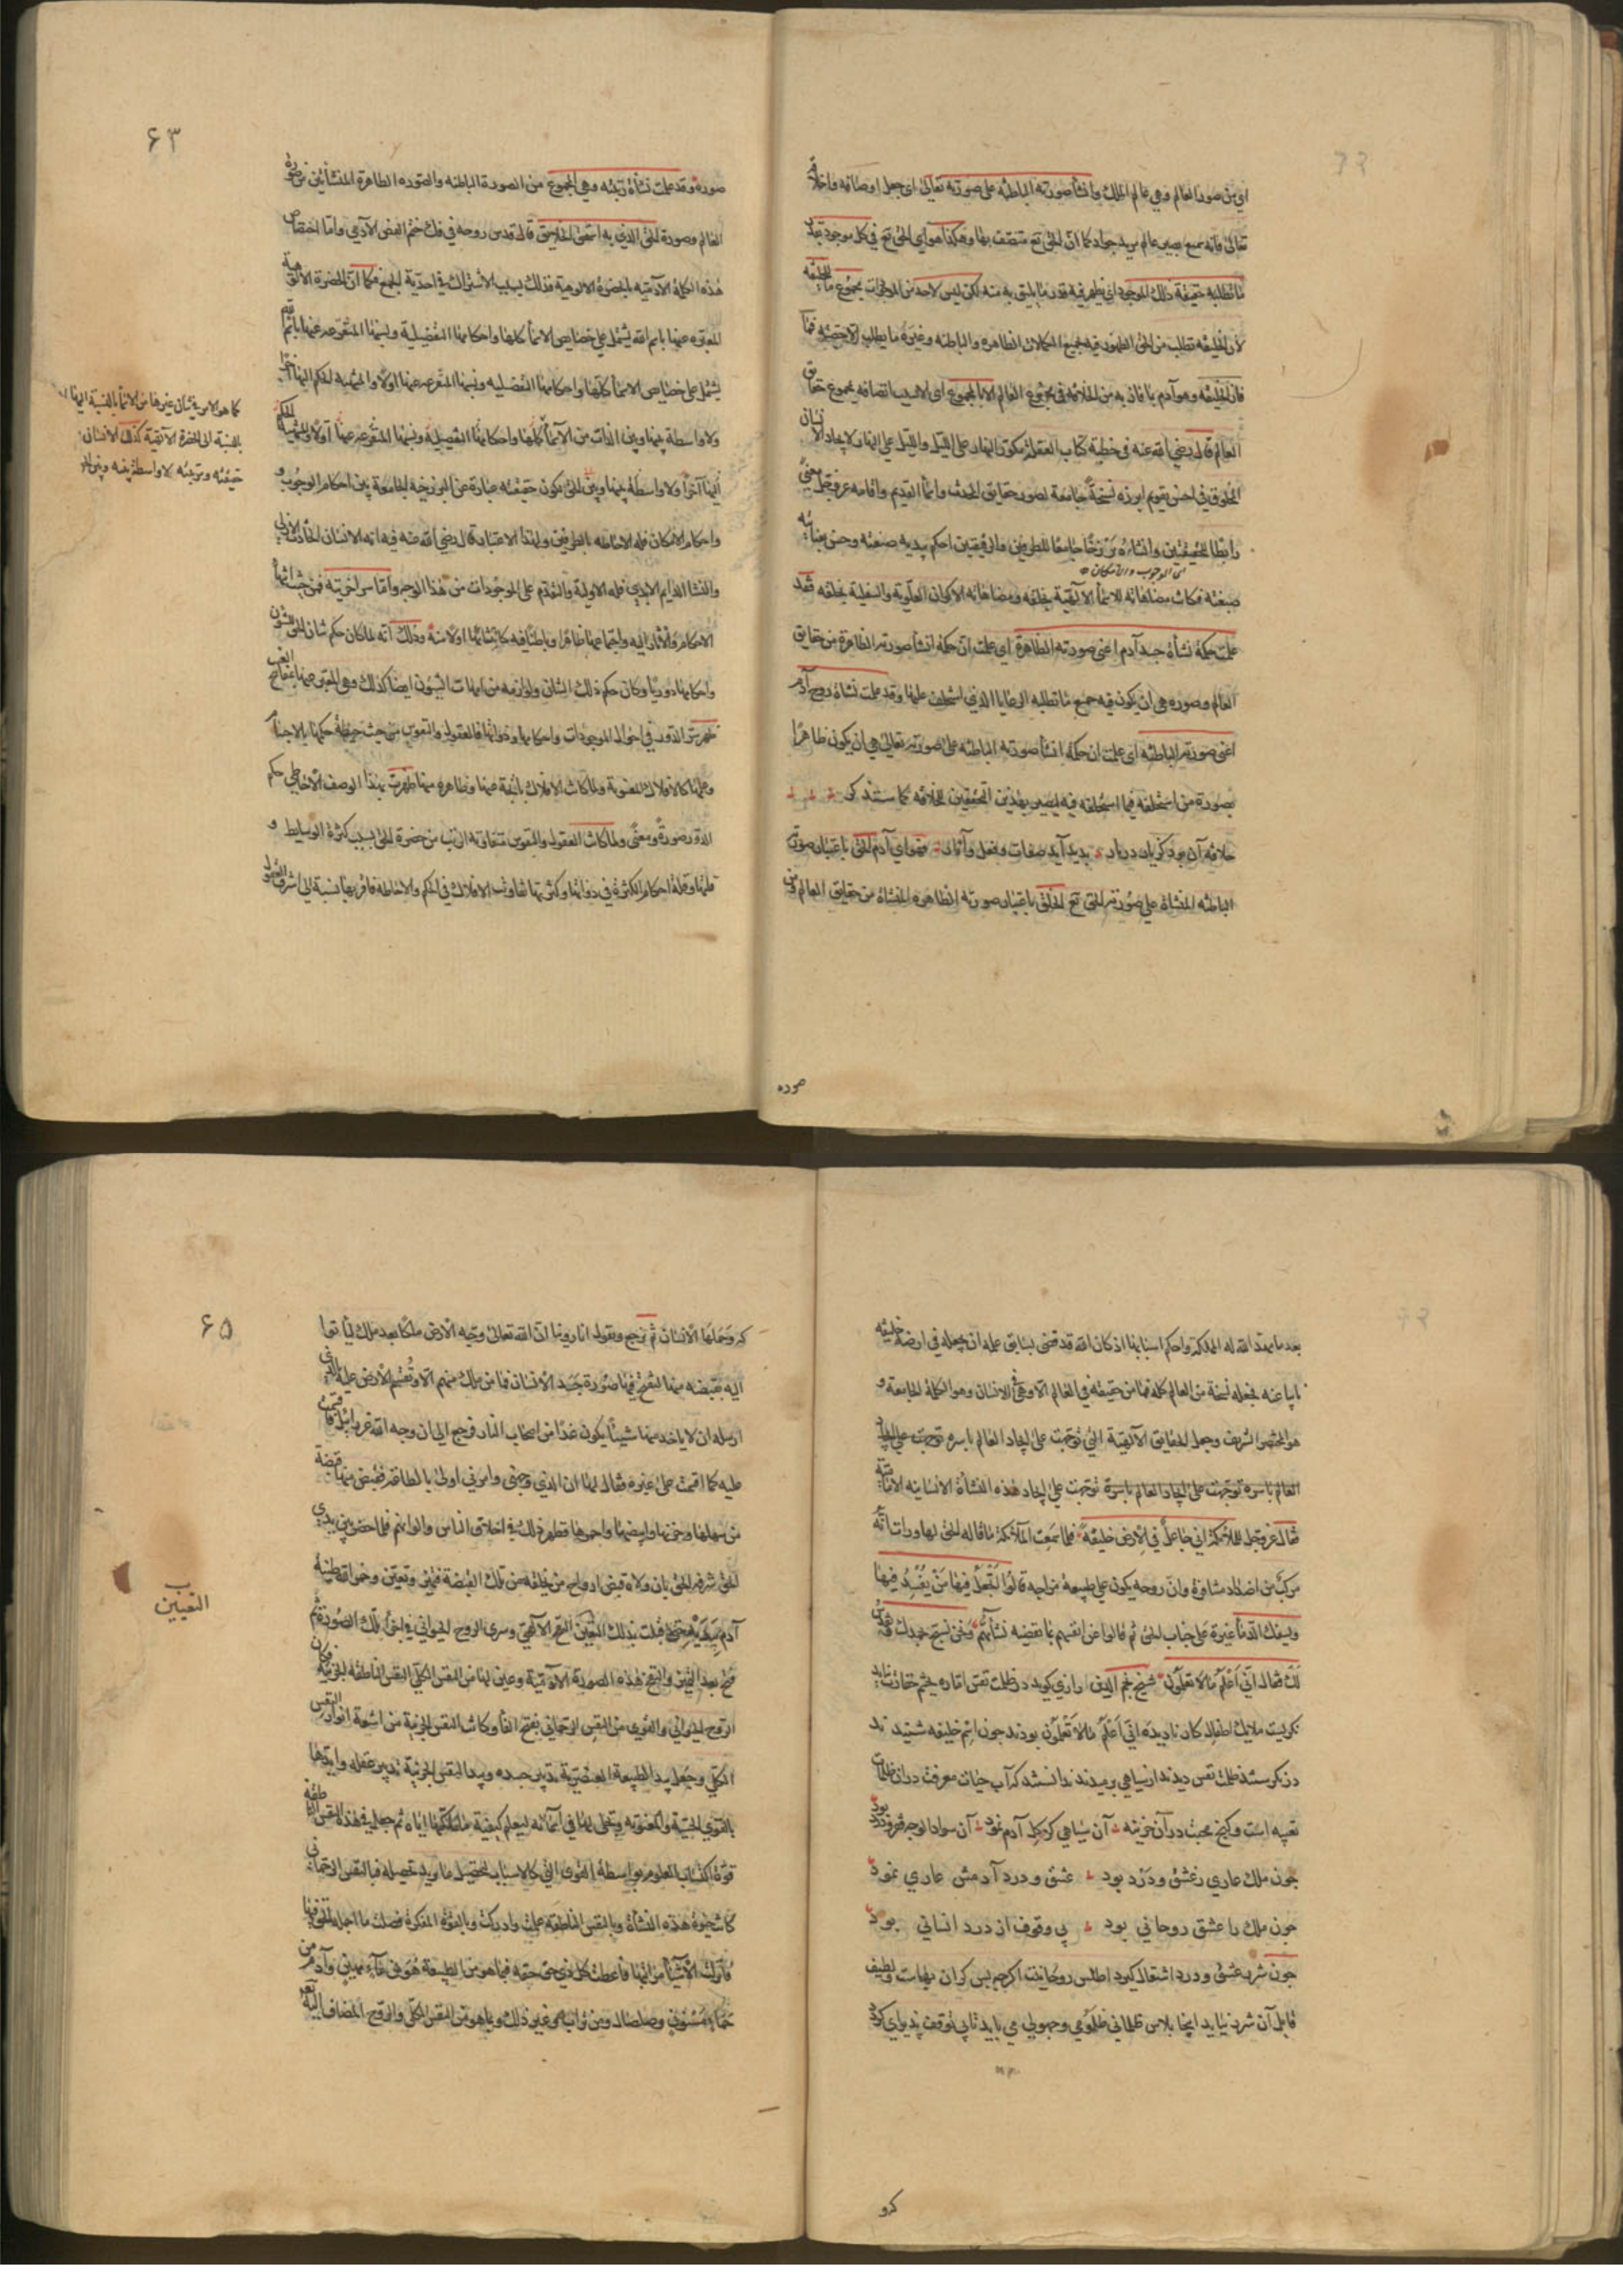 اي من صور العالم وهي عالم الملك وانشا صورته الباطنه على صورته تعالى اى جعل اوصافه واخلاقه
تعالى فانه سميع بصير عالم مريد جواد كما ان الحق تع متصف بها وهكذا هو اي الحق تع في كل موجود بقدر
ما تطلبه حقيقة ذلك الموجود اي يظهر فيه قدر ما يليق به منه لكن ليس لاحد من الموجودات مجموع ما للخليفه
لان الخليفه تطلب من الحق الظهور فيه بجميع الكمالات الظاهره والباطنه وغيره ما يطلب الا حصته فما
فاز الخليفه وهو آدم بما فاز به من الخلافه في مجموع العالم الا بالمجموع اى الا بسبب اتصافه بمجموع حقايق
العالم قال رضي الله عنه في خطبة كتاب العقله مكور النهار على الليل والليل على النهار لايجاد الانسان
المخلوق في احسن تقويم ابرزه نسخة جامعة لصور حقايق المحدث واسمآ القديم واقامه عز وجل معنى
رابطا للحقيقتين وانشاءه برزخا جامعا للطرفين والرقيقتين احكم بيديه صنعته وحسن بعنايته
اى الوجوب والامكان
صبغته فكانت مضاهاته للاسمآ الالهية بخلقه ومضاهاته للاكوان العلوية والسفلية بخلقه فقد
علمت حكمة نشأة جسد آدم اعنى صورته الظاهرة اي علمت ان حكمة انشا صورته الظاهرة من حقايق
العالم وصوره هى ان يكون فيه جميع ما تطلبه الرعايا الذين استخلف عليها وقد علمت نشاة روح آدم
اعنى صورته الباطنه اى علمت ان حكمة انشأ صورته الباطنه على صورته تعالى هي ان يكون ظاهرا
بصورة من استخلفه فيما استخلفه فيه ليصير بهذين التحققين خليفه كما سنذكر
باعتبار صورته
الباطنه المنشاة على صورته الحق تع الخلق باعتبار صورته الظاهره المنشاة من حقايق العالم ومن
صوره
۶۳
صوره وقد علمت نشأة رتبته وهي المجموع من الصورة الباطنه والصوره الظاهرة المنشأتين من صوره
العالم وصورة الحق الذي به استحق الخلافة قال قدس روحه في فك ختم الفص الآدمي واما اختصاص
هذه الكلمة الآدمية بالحضرة الالوهية فذلك بسبب الاشتراك في احدية الجمع فكما ان الحضرة الالهية
المعبر عنها باسم الله يشتمل على خصايص الاسمآ كلها واحكامها التفصيلية ونسبها المتفرعه عنها
يشتمل على خصايص الاسمآ كلها واحكامها التفصيليه ونسبها المتفرعه عنها اولا والمنتهية الحكم اليها آخرا
ولا واسطة بينها وبين الذات من الاسمآ كلها واحكامها التفصيلية ونسبها المتفرعه عنها اولا والمنتهية الحكم
اليها آخرا ولا واسطة بينها وبين الحق لكون حقيقته عبارة عن البرزخيه الجامعة بين احكام الوجوب و
واحكام الامكان فله الاحاطه بالطرفين ولهذا الاعتبار قال رضي الله عنه فيه انه الانسان الحادث الازلي
والنشا الدايم الابدي فله الاولية والتقدم على الموجودات من هذا الوجه واما سر آخريته فمن حيث انتهآ
الاحكام والآثار اليه واجتماعها ظاهرا وباطنا فيه كانتشائها اولا منه وذلك انه لما كان حكم شان الحق
واحكامها دوريا وكان حكم ذلك الشان ولوازمه من امهات الشؤن ايضا كذلك وهي المعبر عنها بمفاتح الغيب
ظهر سر الدور في احوال الموجودات واحكامها وذواتها فالعقول والنفوس من حيث حيطة حكمها
وعلمها كالافلاك المعنوية ولما كانت الافلاك ناتجة عنها وظاهره منها ظهرت بهذا الوصف الاحاطي حكم
الدور صورة ومعنى ولما كانت العقول والنفوس متفاوته الرتب من حضرة الحق بسبب كثرة الوسايط و
قلتها وقلة احكام الكثرة في ذواتها وكثرتها تفاوتت الافلاك في الحكم والاحاطه فاقربها نسبة الى اشرف العقول
كما هو الامر في شان غيرها من الاسمآ بالنسبة اليها
بالنسبة الى الحضرة الالهية كذلك الانسان
حقيقته ومرتبته لا واسطة بينه وبين
بعد ما مهد الله له المملكة واحكم اسبابها اذ كان الله قد قضى بسابق علمه ان يجعله في ارضه خليفه
نايبا عنه فجعله نسخة من العالم كله فما من حقيقه في العالم الا وهي في الانسان وهو الكلمة الجامعة و
هو المختصر الشريف وجعل الحقايق الآلهية التي توجهت على ايجاد العالم باسره توجهت على ايجاد
العالم باسره توجهت على ايجاد العالم باسره توجهت على ايجاد هذه النشأة الانسانيه الاماميه
فقال عز وجل للملائكة اني جاعل في الارض خليفة فلما سمعت الملائكة ما قاله الحق لها ورات انه
مركب من اضداد متنافرة وان روحه يكون على طبيعة مزاجه قالوا اتجعل فيها من يفسد فيها
ويسفك الدمآ غيرة على جناب الحق ثم قالوا عن انفسهم بما تقتضيه نشأتهم ونحن نسبح بحمدك ونقدس
لك فقال اني اعلم ما لا تعلمون شيخ نجم الدين رازي كويد در ظلمت نفس اماره بچشم حقارت
ملايك اطفال كار ناديده انى اعلم ما لا تعلمون بودند چون اسم خليفه شنيدند
در نكرستند ظلمت نفس ديدند از سياهي برميدند ندانستند كه آب حيات معرفت در ان ظلمات
تعبيه است وكنج محبت در آن خزينه آن سياهي كز كل آدم نمود آن سواد الوجه فقر بود
چون ملك عاري ز عشق ودرد بود عشق ودرد آدمش عاري نمود
چون ملك را عشق روحاني بود بي وقوف از درد انساني بود
چون شرر عشق ودرد اشتعال كيرد اطلس روحانيت اكرچه بس كران بهاست ولطيف
قابل آن شرر نيايد اينجا پلاس ظلماني ظلومي وجهولي مي بايد تا بي توقف پذيراي كردد
كرد
۶۵
كه وحملها الانسان ثم نرجع ونقول انا روينا ان الله تعالى وجه الى الارض ملكا بعد ملك لياتوا
اليه بقبضه منها ليفتح فيها صورة جسد الانسان فما من ملك منهم الا وتقسم الارض عليه بالذي
ارسله ان لا ياخذ منها شيئا يكون غدا من اصحاب النار فرجع الى ان وجه الله عزرائيل فاقسمت
عليه كما اقسمت على غيره فقال لها ان الذي وجهني وامرني اولى بالطاعه فقبض منها قبضة
من سهلها وحزنها وابيضها واحمرها فظهر ذلك في اخلاق الناس والوانهم فلما حضر بين يدي
الحق شرفه الحق بان ولاه قبض ارواح من يخلقه من تلك القبضة فتميز وتعين وخمر الله طينة
آدم بيديه حتى قبلت بذلك التعين النفخ الآلهي وسرى الروح الحيواني في اجزآ تلك الصورة ثم
الروح الحيواني والقوى من النفس الرحماني بفتح الفآ وكانت النفس الجزئية من اشعة انوار النفس
الكلي وجعل بيد الطبيعة العنصرية تدبير جسده وبيد النفس الجزئية تدبير عقله وايدها
بالقوى الحسية والمعنوية وتجلى لها في اسمآئه ليعلم كيفية ما ملكها اياه ثم جعل في هذه النفس الناطقه
قوة اكتساب العلوم بواسطة القوى التي كالاسباب لتحصيل ما يريد تحصيله فبالنفس الرحماني
كانت حيوة هذه النشأة وبالنفس الناطقه علمت وادركت وبالقوة المفكرة فصلت ما اجمله الحق فيها
فانزلت الاشيآ مراتبها فاعطت كل ذي حق حقه فبما هو من الطبيعة هو من مآء مهين وآدم من
حمآء مسنون وصلصال ومن تراب الى غير ذلك وبما هو من النفس الكلي والروح المضاف اليه تعالى
التعيين